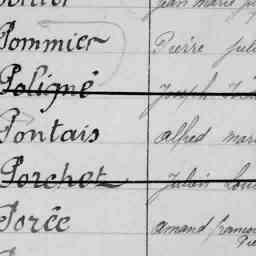 Jean Marie
Pommier Pierre Juli
Poligné Joseph
Pontais Alfred Mari
Porchet Julien Loui
Porée Amand françoi
Pie